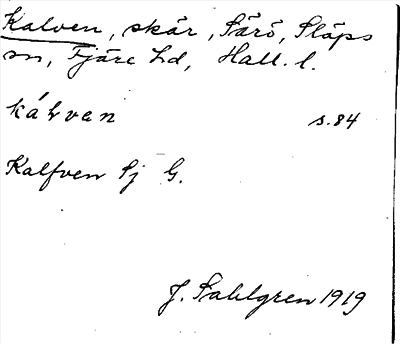 Kalven, skär, Särö, Släps
sn, Fjäre hd, Hall. l.
kálven s. 84
Kalfven Sj G.
J. Sahlgren 1919